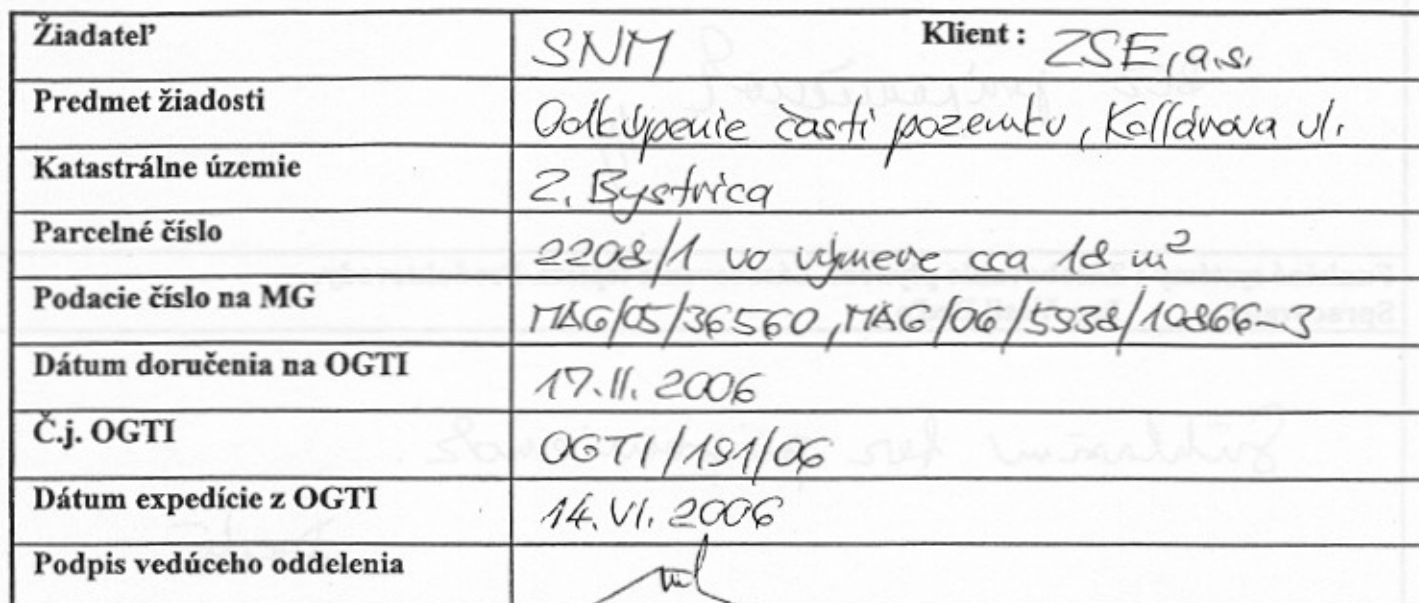 Žiadateľ SNM Klient : ZSE, a.s.
Predmet žiadosti Odkúpenie časti pozemku, Kollárova ul.
Katastrálne územie Z. Bystrica
Parcelné číslo 2208/1 vo výmere cca 18 m²
Podacie číslo na MG MAG/05/36560, MAG/06/5938/10866-3
Dátum doručenia na OGTI 17.II. 2006
Č.j. OGTI OGTI/191/06
Dátum expedície z OGTI 14. VI. 2006
Podpis vedúceho oddelenia